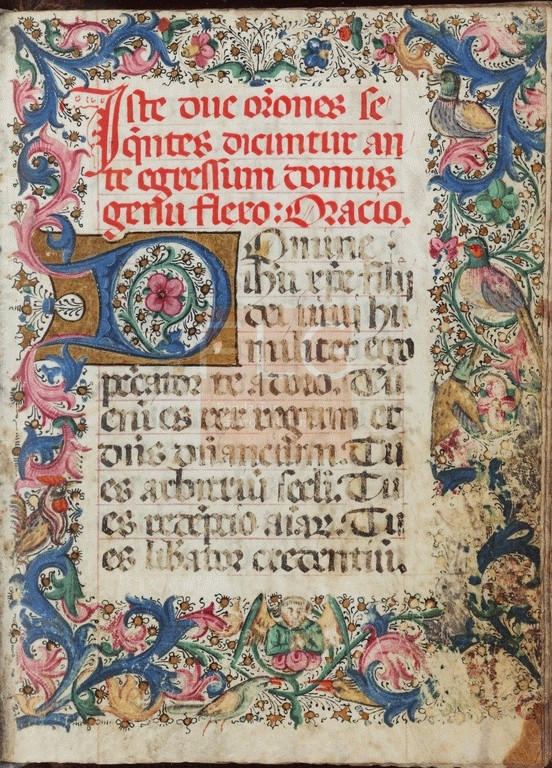 Iste due orōnes se
qn̄tes dicuntur an
te egressum domus
genu flexo: Oracio.
Domine
ihū xpē filij
dei uiuj hu
militer ego
peccator te adoro. Tu
eni es rex regum et
dn̄s dn̄ancium. Tu
es arbitriū scēli. Tu
es redēpcio aīaꝝ. Tu
es libator credentiū.